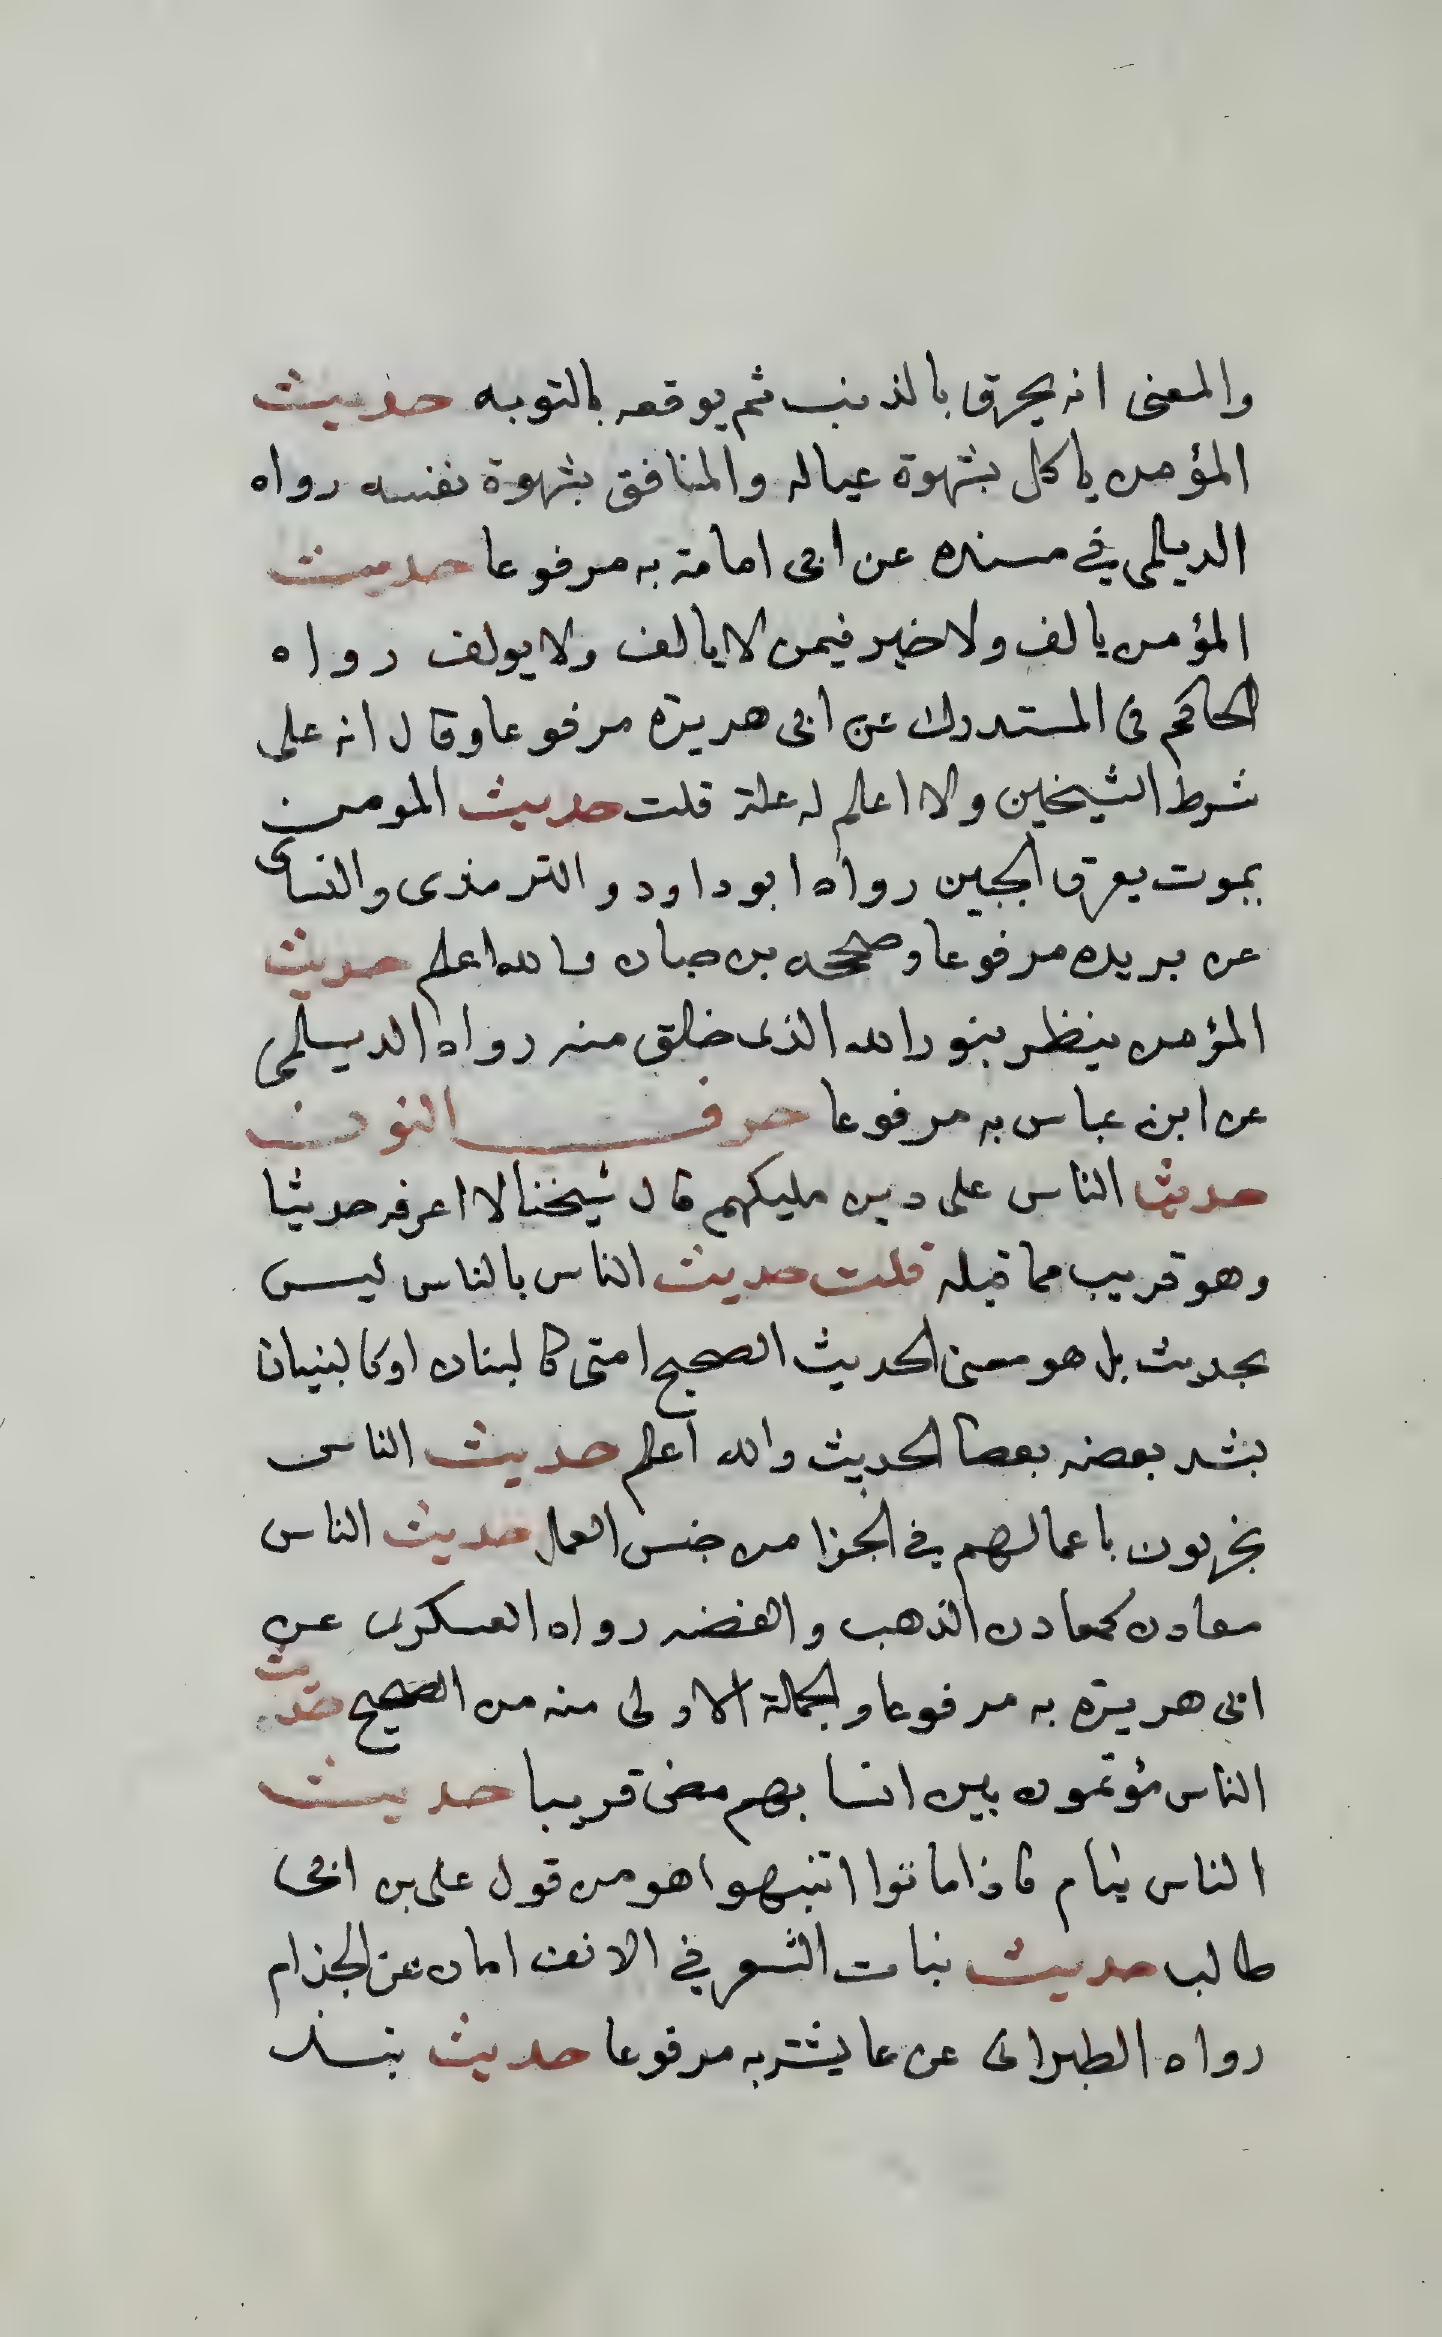 والمعنى انه يحرق بالذنب ثم يوقعه بالتوبه حديث
المؤمن ياكل بشهوة عياله والمنافق بشهوة نفسه رواه
الديلمي في مسنده عن ابى امامة به مرفوعا حديث
المؤمن يالف ولا خير فيمن لا يالف ولا يولف رواه
الحاكم فى المستدرك عن ابى هريرة مرفوعا وقال انه على
شرط الشيخين ولا اعلم له علة قلت حديث المومن
يموت بعرق الجبين رواه ابو داود والترمذى والنساى
عن بريده مرفوعا وصححه بن حبان والله اعلم حديث
المؤمن ينظر بنور الله الذى خلق منه رواه الديلمى
عن ابن عباس به مرفوعا حرف النون
حديث الناس على دين مليكهم قال شيخنا لا اعرفه حديثا
وهو قريب مما قبله قلت حديث الناس بالناس ليس
بحديث بل هو معنى الحديث الصحيح امتى كا لبنان او كالبنيان
يشد بعضه بعضا الحديث والله اعلم حديث الناس
يجزيون باعمالهم في الجزا من جنس العمل حديث الناس
معادن كمعادن الذهب والفضه رواه العسكرى عن
ابى هريرة به مرفوعا والجملة الاولى منه من الصحيح حديث
الناس مؤتمون بين انسابهم مضى قريبا حديث
الناس نيام فاذا ماتوا انتبهوا هو من قول على بن ابى
طالب حديث نبات الشعر في الانف امان من الجذام
رواه الطبرانى عن عايشة به مرفوعا حديث